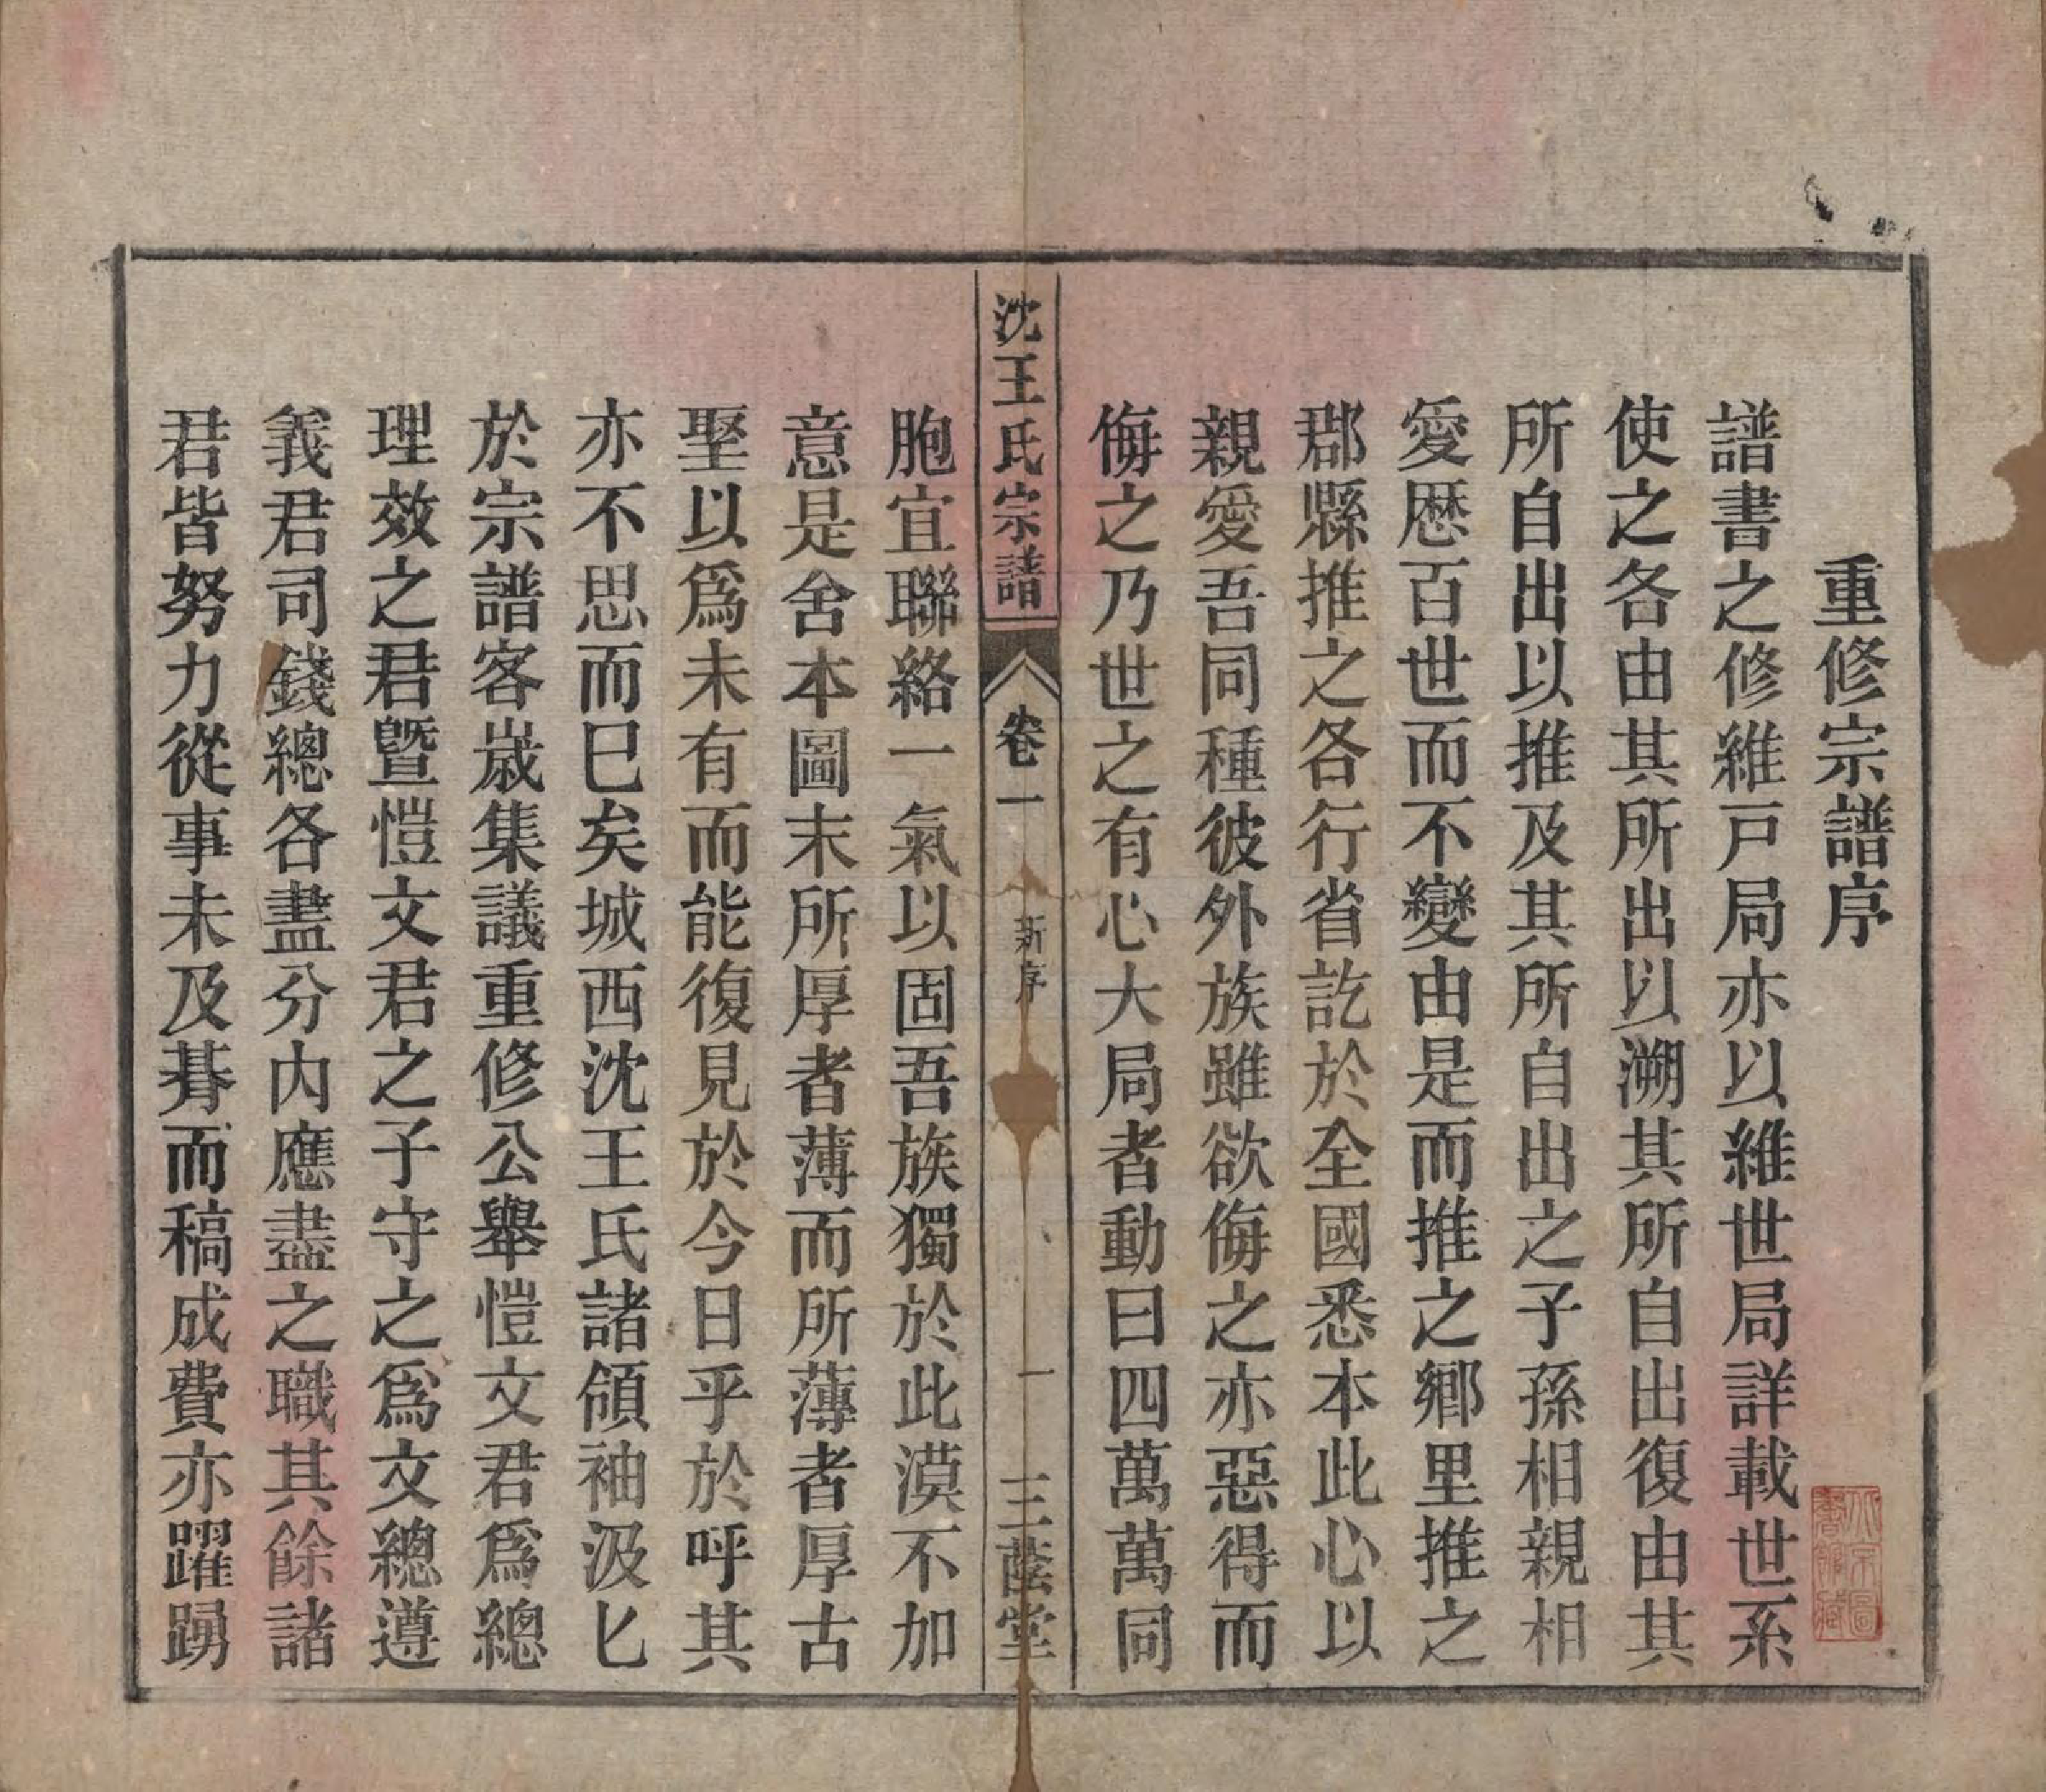 重修宗譜序
譜書之修維戸局亦以維世局詳載世系
使之各由其所出以溯其所自出復由其
所自出以推及其所自出之子孫相親相
愛歴百世而不變由是而推之鄉里推之
郡縣推之各行省訖於全國悉本此心以
親愛吾同種彼外族雖欲侮之亦惡得而
侮之乃世之有心大局者動曰四萬萬同
沈王氏宗譜
卷一
新序
一
三蔭堂
胞宜聯絡一氣以固吾族獨於此漠不加
意是舍本圖末所厚者薄而所薄者厚古
聖以爲未有而能復見於今日乎於呼其
亦不思而已矣城西沈王氏諸領袖汲匕
於宗譜客嵗集議重修公舉愷文君爲總
理效之君暨愷文君之子守之爲文總遵
義君司錢總各盡分内應盡之職其餘諸
君皆努力從事未及朞而稿成費亦躍踴